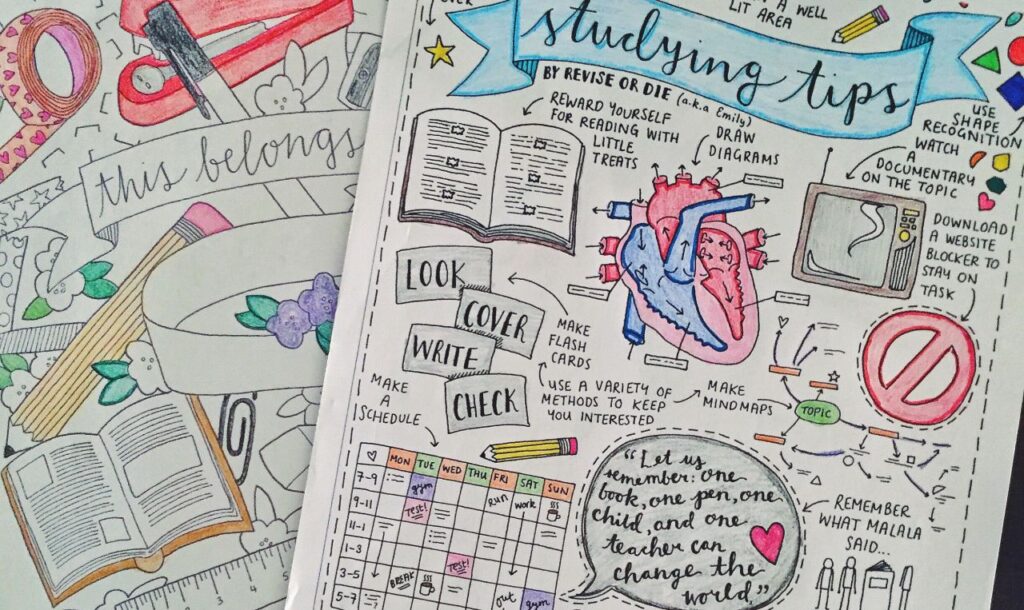 this belongs
N A WELL
LIT AREA
studying tips
BY REVISE OR DIE
(a.k.a Emily)
REWARD YOURSELF
FOR READING WITH
LITTLE
TREATS
DRAW
DIAGRAMS
USE
SHAPE
RECOGNITION
WATCH
A
DOCUMENTARY
ON THE TOPIC
DOWNLOAD
A WEBSITE
BLOCKER TO
STAY ON
TASK
LOOK
COVER
WRITE
CHECK
MAKE
FLASH
CARDS
USE A VARIETY OF
METHODS TO KEEP
YOU INTERESTED
MAKE
MINDMAPS
TOPIC
MAKE
A
SCHEDULE
MON TUE WED THU FRI SAT SUN
7-9 gym
9-11 Test! Run work
11-1
1-3 Test!
3-5 BREAK
5-7 out gym
"Let us
remember: one
book, one pen, one
child, and one
teacher can
change the
world."
REMEMBER
WHAT MALALA
SAID...
4
5